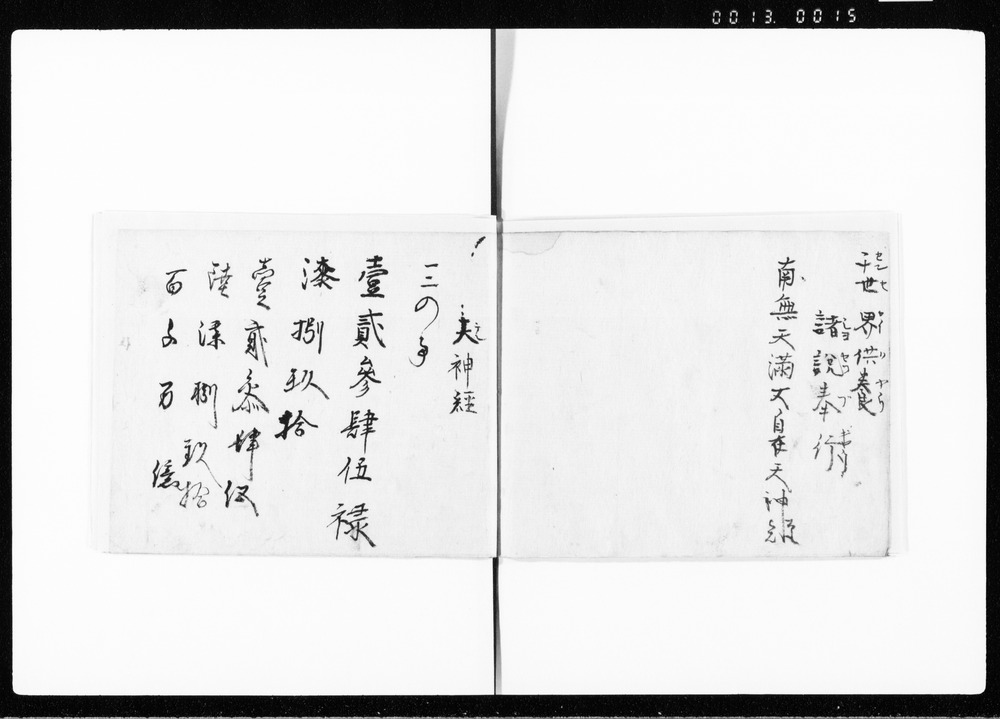 0013. 0015
世界供養
諸說奉行
南無天満大自在天神
神經
一三の事
壹貳參肆伍禄
漆捌玖拾
壹貳叅肆伍
陸漆捌玖拾
百千万億